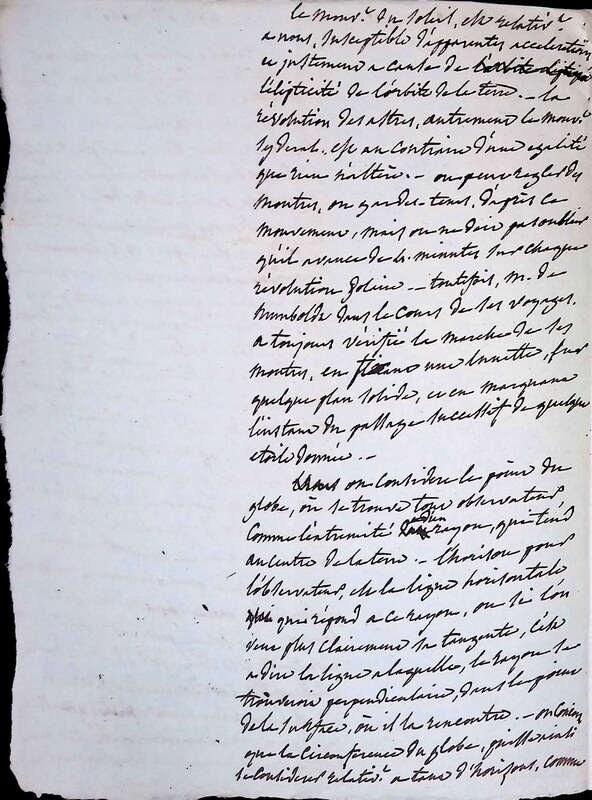 le mouv.t du soleil, est relativ.t
a nous, susceptible d'apparentes acceleration
et justement a cause de l'orbite eliptique
l'élipticité de l'orbite de la terre. - la
révolution des astres, autrement le mouv.t
syderal. est au contraire d'une egalité
que rien n'altère. - on peut regler des
montres, ou gardes-tems, d'après ce
mouvement, mais on ne doit pas oublier
qu'il avance de 4. minutes sur chaque
révolution solaire - toutefois, m. de
humboldt dans le cours de ses voyages,
a toujours vérifié la marche de ses
montres, en fixant une lunette, sur
quelque plan solide, et en marquant
l'instant du passage successif de quelque
etoile donnée. -
on considère le point du
globe, où se trouve tout observateur
comme l'extrémité d'un rayon, qui tend
au centre de la terre. - l'horison pour
l'observateur, est la ligne horisontale
qui répond a ce rayon, ou si l'on
veut plus clairement sa tangente, c'est
a dire la ligne a laquelle, le rayon se
trouveroit perpendiculaire, dans le point
de la surface, où il la rencontre. - on conçoit
que la circonference du globe, puisse ainsi
se considerer relativ.t a tant d'horisons, comme